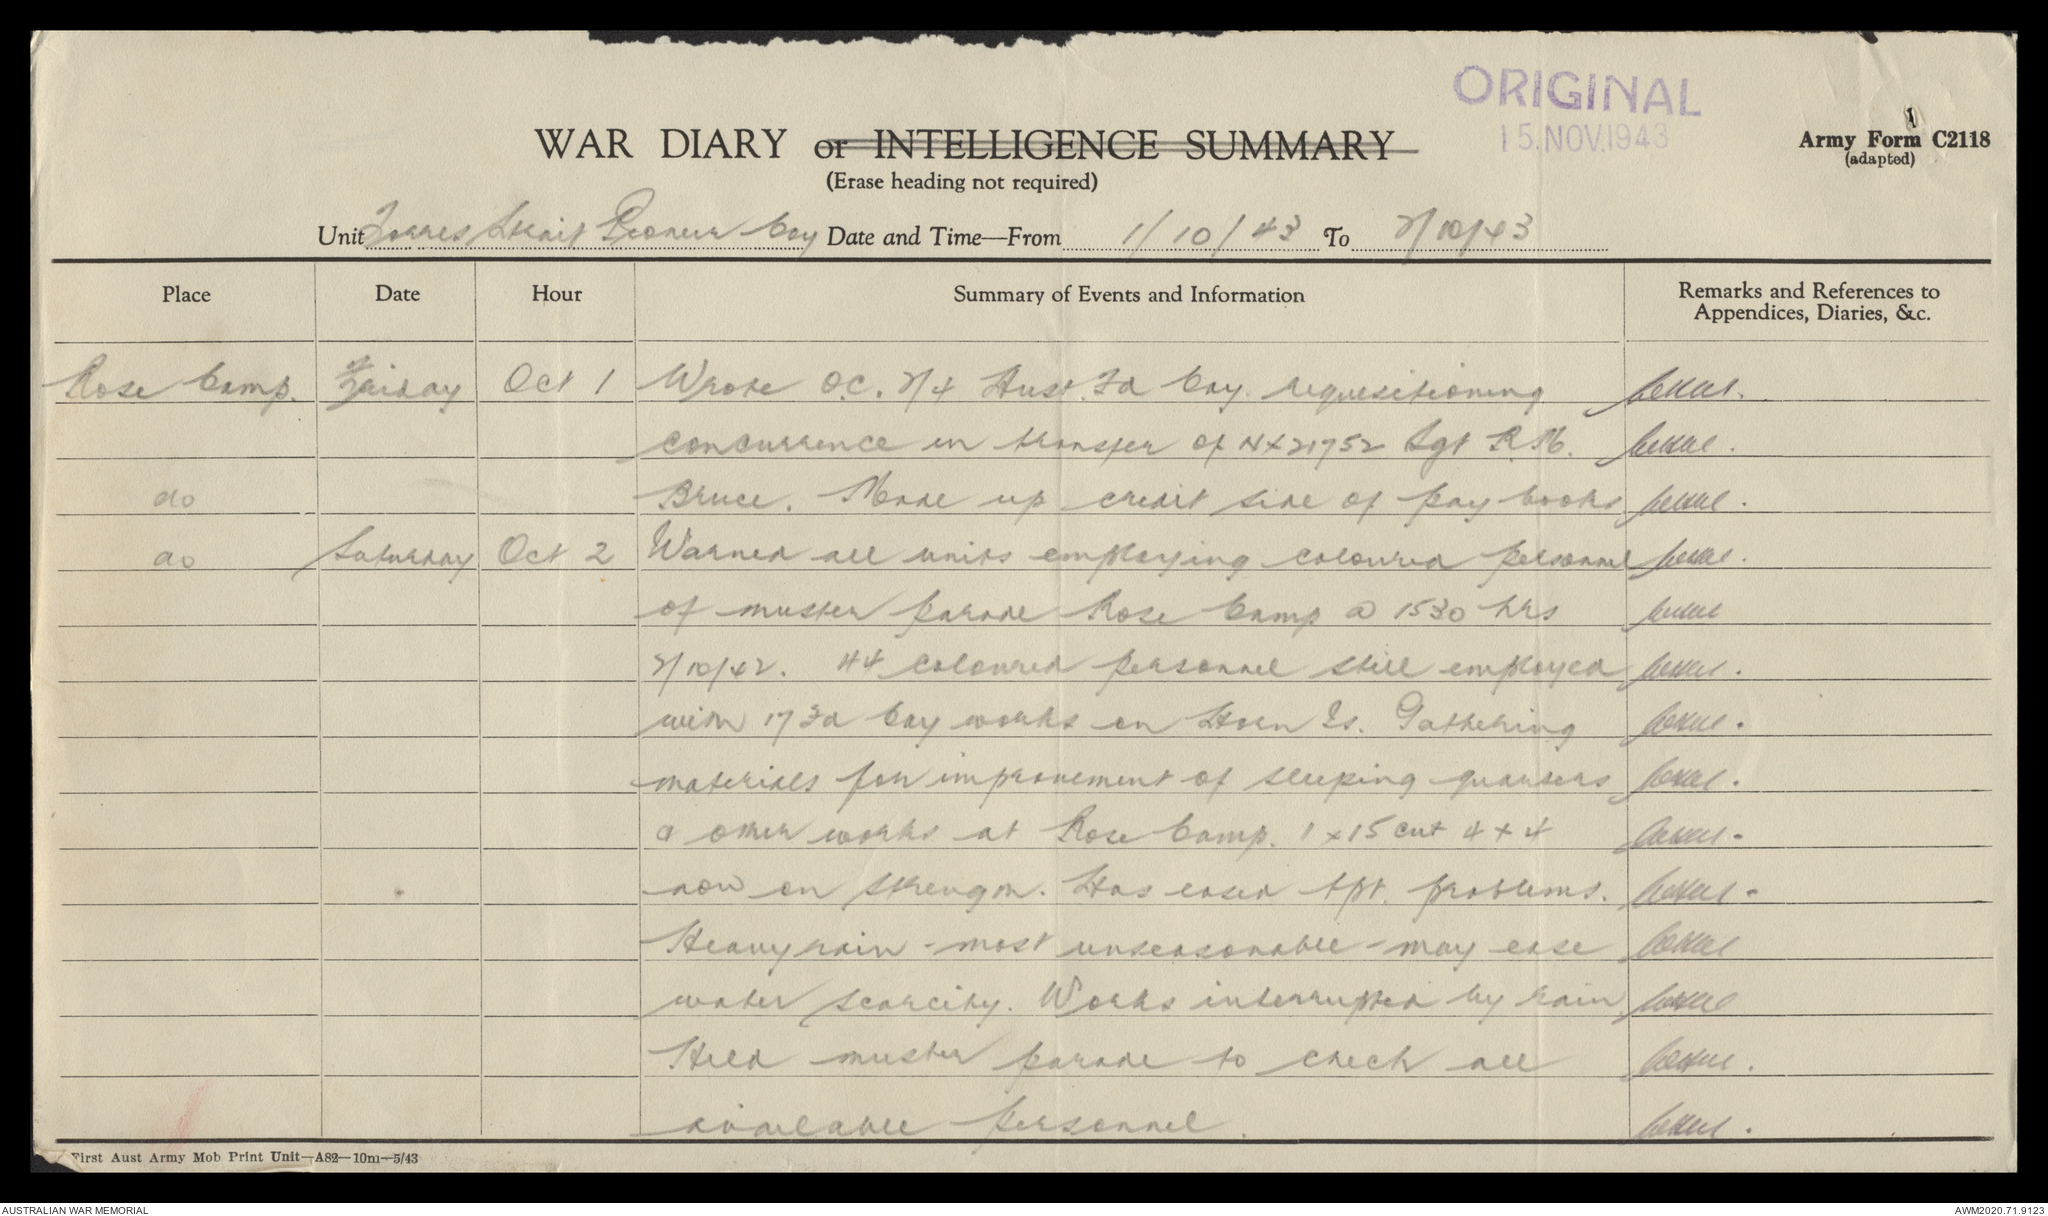 ORIGINAL
15 NOV 1943
1
WAR DIARY or INTELLIGENCE SUMMARY
Army Form C2118
(adapted)
(Erase heading not required)
Unit Torres Strait Pioneer Coy Date and Time—From 1/10/43 To 2/10/43
Place Date Hour Summary of Events and Information Remarks and References to
Appendices, Diaries, &c.
Rose Camp. Friday Oct 1 Wrote O.C. 2/4 Aust. Fd Coy. requisitioning
concurrence in transfer of NX21752 Sgt R.M.
do Bruce. Made up credit side of pay books
do Saturday Oct 2 Warned all units employing coloured personnel
of muster parade Rose Camp @ 1530 hrs
2/10/42. 44 coloured personnel still employed
with 17 Fd Coy works on Horn Is. Gathering
materials for improvement of sleeping quarters
& other works at Rose Camp. 1 x 15 cwt 4 x 4
now on strength. Has eased tpt. problems.
Heavy rain - most unseasonable - may ease
water scarcity. Works interrupted by rain
Held muster parade to check all
available personnel.
First Aust Army Mob Print Unit—A82—10m—5/43
AUSTRALIAN WAR MEMORIAL
AWM2020.71.9123